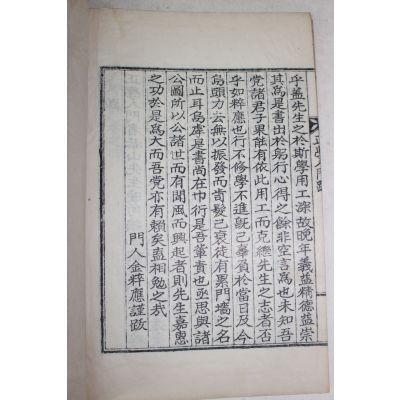 乎蓋先生之於斯學用工深故晚年義益精德益崇
其爲是書出於躬行心得之餘非空言爲也未知吾
党諸君子果能有依此用工而克繼先生之志者否
乎如粹應也行不修學不進既已辜負於當日及今
烏頭力去無以振發而齒髮已衰徒有累門墻之名
而止耳烏虖是書尚在巾衍是吾輩責也亟思與諸
公圖所以公諸世而有聞風而興起者則先生嘉惠
之功於是爲大而吾党亦有賴矣盍相勉之哉
門人金粹應謹跋